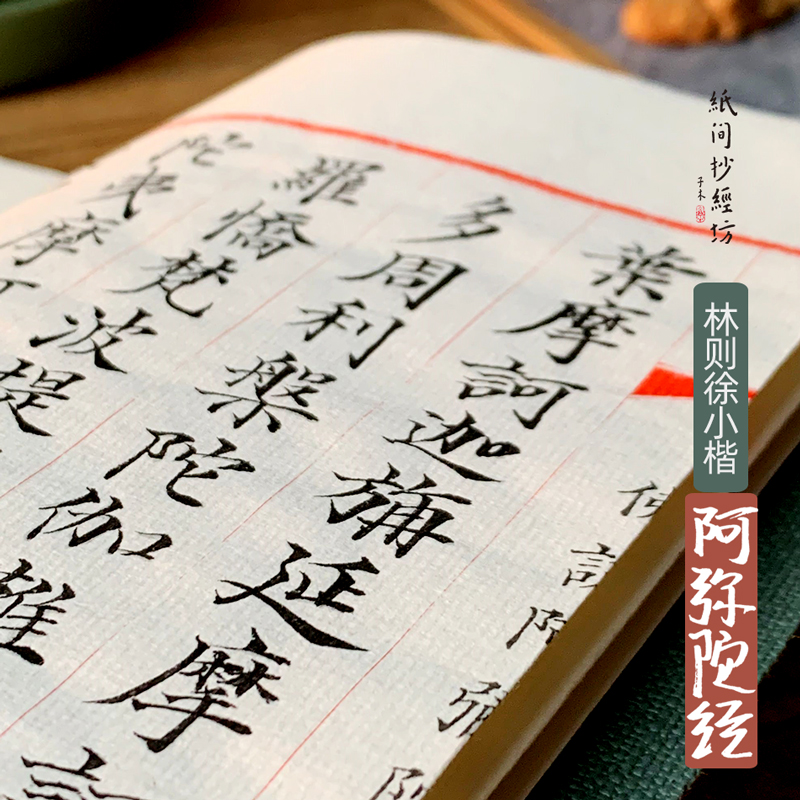 紙间抄經坊
子木
林则徐小楷
阿弥陀经
葉摩訶迦旃延摩訶
多周利槃陀伽
羅憍梵波提
陀夷摩
說阿彌陀